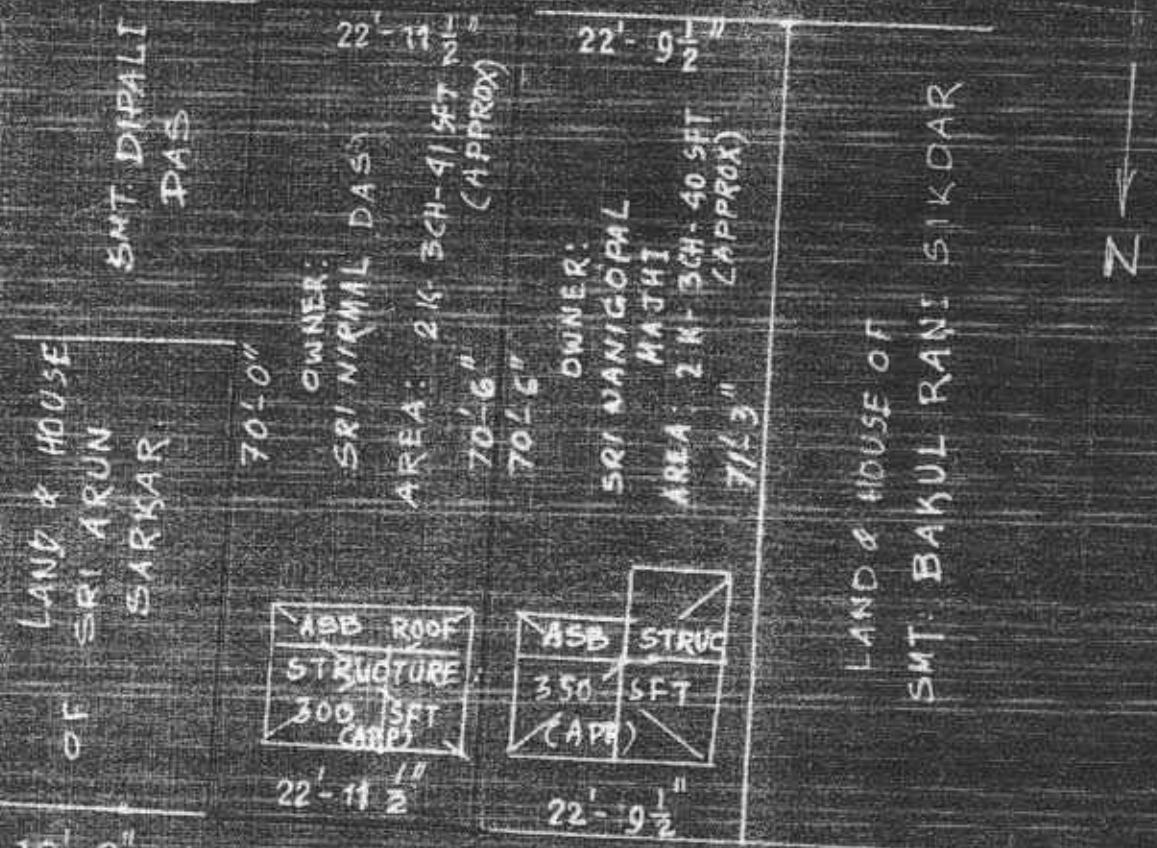 SMT. DIPALI
DAS
LAND & HOUSE
OF SRI ARUN
SARKAR
22'-11 1/2"
70'-0"
OWNER:
SRI NIRMAL DAS
AREA: 2K-3CH-41 SFT
(APPROX)
70'-6"
ASB ROOF
STRUCTURE
300 SFT
(APP)
22'-11 1/2"
22'-9 1/2"
70'-6"
OWNER:
SRI NANIGOPAL
MAJHI
AREA: 2K-3CH-40 SFT
(APPROX)
71'-3"
ASB STRUC
350 SFT
(APP)
22'-9 1/2"
LAND & HOUSE OF
SMT: BAKUL RANI SIKDAR
N